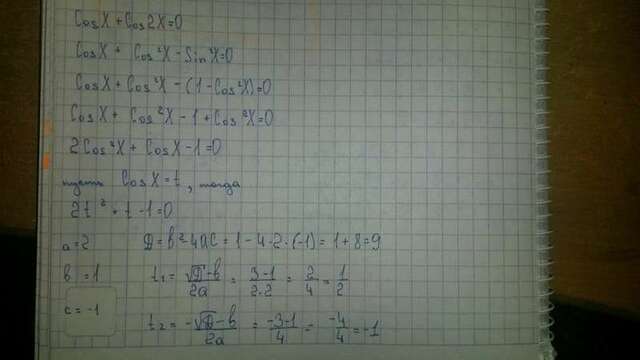 Cosx + Cos2x=0
Cosx + Cos²x - Sin²x=0
Cosx + Cos²x - (1 - Cos²x)=0
Cosx + Cos²x - 1 + Cos²x=0
2Cos²x + Cosx - 1=0
пусть Cosx=t, тогда
2t² + t - 1=0
a=2 D=b²-4ac= 1-4·2·(-1)= 1+8=9
b=1 t₁= (√D-b)/2a = (3-1)/2·2 = 2/4 = 1/2
c=-1
t₂= (-√D-b)/2a = (-3-1)/4 = -4/4 = -1